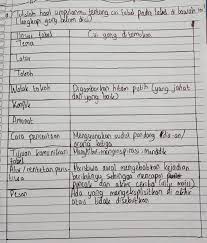 Tulislah hasil simpulanmu tentang ciri fabel pada tabel di bawah ini
(lengkapi yang belum diisi)
Unsur fabel
Ciri yang ditemukan
Tema
Latar
Tokoh
Watak tokoh
Digambarkan hitam putih (yang jahat
dan yang baik)
Konflik
Amanat
Cara penceritaan
Menggunakan sudut pandang
orang ketiga
Tujuan komunikasi
fabel
Menghibur, menginspirasi, mendidik
Peristiwa awal mengakibatkan kejadian
berikutnya sehingga mencapai
puncak dan akhir cerita (alur maju)
Pesan
Ada yang mengeksplisitkan di akhir
atau tidak disebutkan